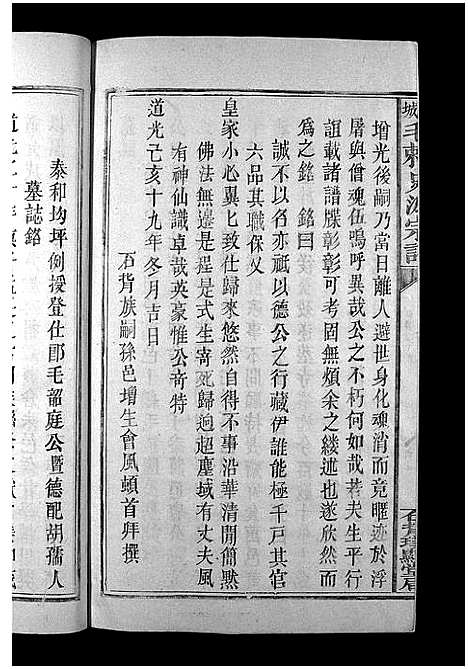 增光後嗣乃當日離人避世身化魂消而竟曖迹於浮
屠與僧魂伍嗚呼異哉公之不朽何如哉若夫生平行
誼載諸譜牒彰彰可考固無煩余之縷述也遂欣然而
為之銘 銘曰
誠不以名亦祗以德公之行藏伊誰能極千戸其官
六品其職保乂
皇家小心翼翼匕仕歸來悠然自得不事沿華清閒簡黙
佛法無邊是程是式生寄死歸迥超塵域有丈夫風
有神仙識卓哉英豪惟公奇特
道光己亥十九年冬月吉日
石背族嗣孫邑增生會風頓首拜撰
泰和均坪例授登仕郎毛韶庭公暨德配胡孺人
墓誌銘